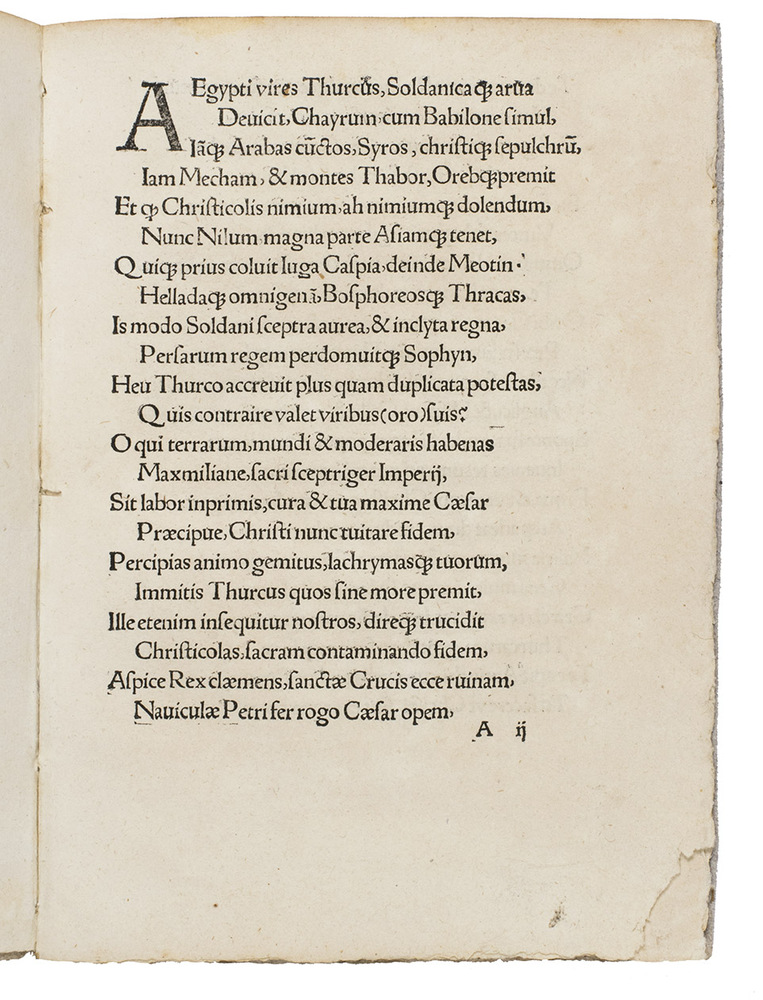 AEgypti vires Thurcus, Soldanicaq; arua
Deuicit, Chayrum cum Babilone simul,
Iāq; Arabas cūctos, Syros, christiq; sepulchrū,
Iam Mecham, & montes Thabor, Orebq; premit
Et ꝙ Christicolis nimium, ah nimiumq; dolendum,
Nunc Nilum magna parte Asiamq; tenet,
Quiq; prius coluit Iuga Caspia, deinde Meotin
Helladaq; omnigenā, Bosphoreosq; Thracas,
Is modo Soldani sceptra aurea, & inclyta regna,
Persarum regem perdomuitq; Sophyn,
Heu Thurco accreuit plus quam duplicata potestas,
Quis contraire valet viribus (oro) suis?
O qui terrarum, mundi & moderaris habenas
Maxmiliane, sacri sceptriger Imperij,
Sit labor inprimis, cura & tua maxime Cæsar
Præcipue, Christi nunc tuitare fidem,
Percipias animo gemitus, lachrymasq; tuorum,
Immitis Thurcus quos sine more premit,
Ille etenim insequitur nostros, direq; trucidit
Christicolas, sacram contaminando fidem,
Aspice Rex clæmens, sanctæ Crucis ecce ruinam,
Nauiculæ Petri fer rogo Cæsar opem,
A ij